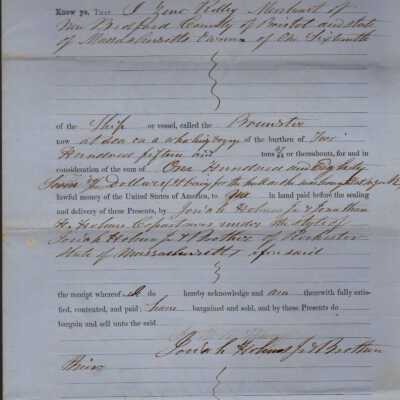 Know ye, That I Zeno Kelley Merchant of
New Bedford County of Bristol and State
of Massachusetts Owner of One Sixteenth
of the Ship or vessel, called the
now at sea on a whaling voyage of the burthen of Two
Hundred fifteen and tons or thereabouts, for and in
consideration of the sum of One Hundred and Eighty
Seven Dollars being for the hull
lawful money of the United States of America, to me in hand paid before the sealing
and delivery of these Presents, by Josiah Holmes Jr & Jonathan
H. Holmes Copartners under the style of
Josiah Holmes Jr & Brother of Rochester
State of Massachusetts aforesaid
the receipt whereof I do hereby acknowledge and am therewith fully satis-
fied, contented, and paid; have bargained and sold, and by these Presents do
bargain and sell unto the said
Josiah Holmes Jr & Brother